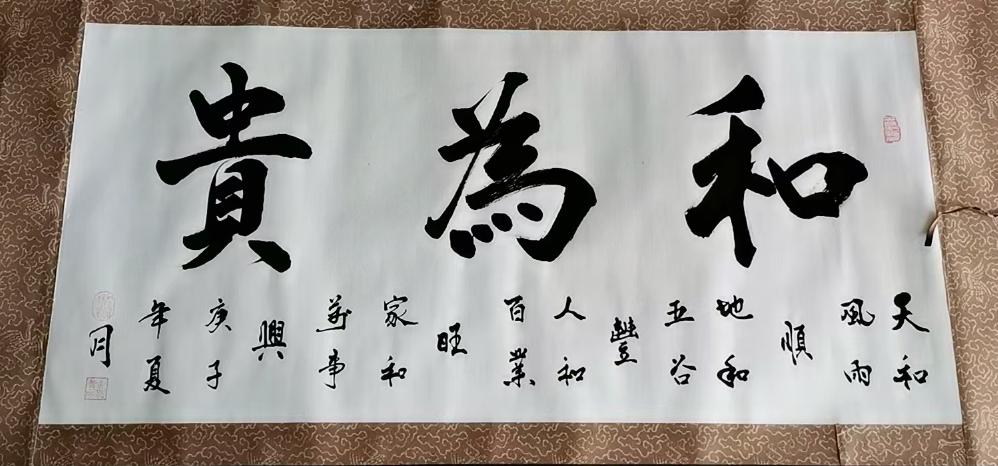 和為貴
天和
風雨
順
地和
五谷
豐
人和
百業
旺
家和
萬事
興
庚子
年夏
月